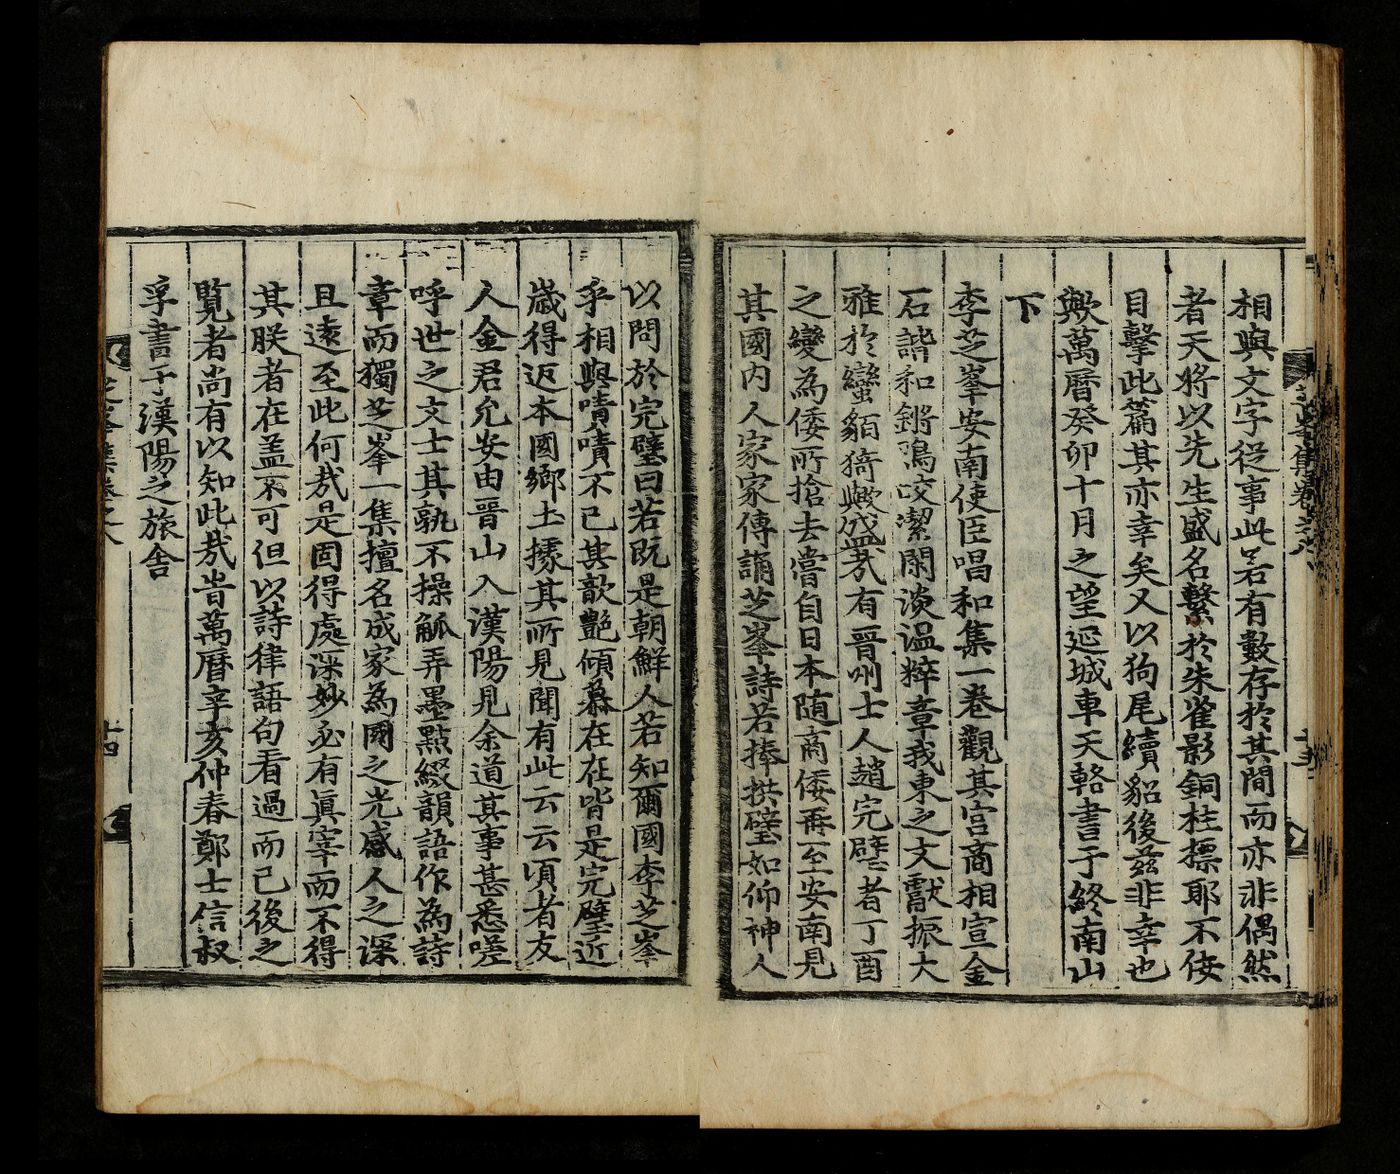 相與文字從事此若有數存於其間而亦非偶然
者天將以先生盛名繫於朱雀影銅柱標耶不佞
目擊此篇其亦幸矣又以狗尾續貂後玆非幸也
歟萬曆癸卯十月之望延城車天輅書于終南山
下
李芝峯安南使臣唱和集一卷觀其宮商相宣金
石諧和鏘鳴咬潔閑淡溫粹章我東之文獻振大
雅於蠻貊猗歟盛㢤有晋州士人趙完璧者丁酉
之變為倭所搶去嘗自日本随商倭再至安南見
其國內人家家傳誦芝峯詩若捧拱璧如仰神人
以問於完璧曰若既是朝鮮人若知爾國李芝峯
乎相與嘖嘖不已其歆艶傾慕在在皆是完璧近
歲得返本國鄉土據其所見聞有此云云頃者友
人金君允安由晋山入漢陽見余道其事甚悉嗟
呼世之文士其孰不操觚弄墨點綴韻語作為詩
章而獨芝峯一集擅名成家為國之光感人之深
且遠至此何㢤是固得處深妙必有眞宰而不得
其朕者在盖不可但以詩律語句看過而已後之
覧者尚有以知此㢤旹萬曆辛亥仲春鄭士信叔
孚書于漢陽之旅舍
芝峯集卷之八
十四